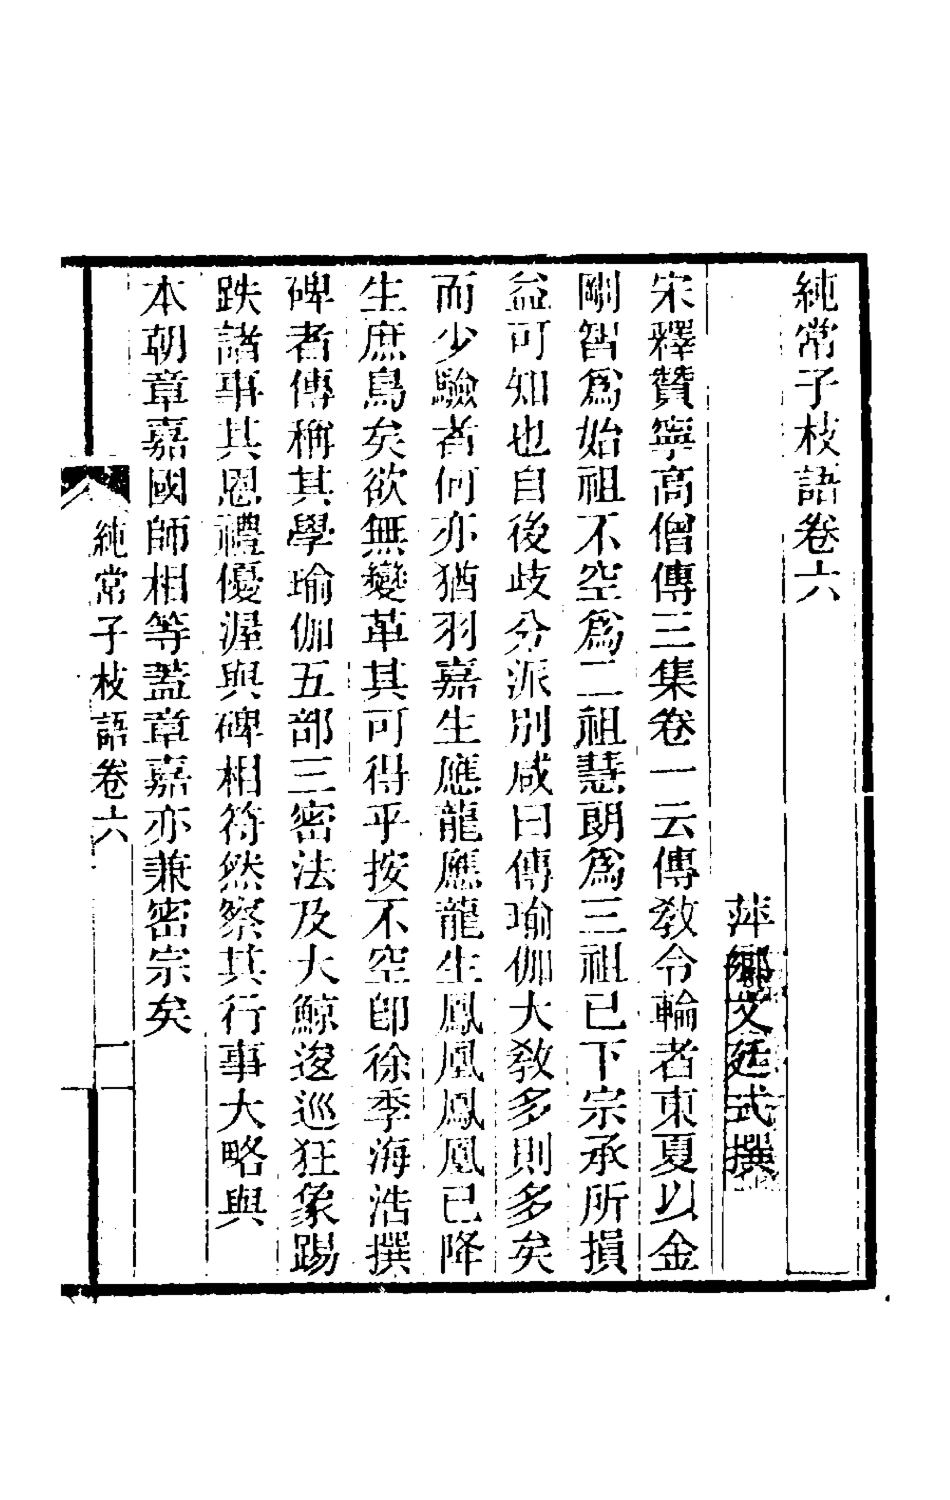 純常子枝語卷六
萍鄉文廷式撰
宋釋贊寧高僧傳三集卷一云傳敎令輪者東夏以金
剛智爲始祖不空爲二祖慧朗爲三祖已下宗承所損
益可知也自後歧分派別咸曰傳瑜伽大敎多則多矣
而少驗者何亦猶羽嘉生應龍應龍生鳳凰鳳凰已降
生庶鳥矣欲無變革其可得乎按不空卽徐季海浩撰
碑者傳稱其學瑜伽五部三密法及大鯨逡巡狂象踢
跌諸事其恩禮優渥與碑相符然察其行事大略與
本朝章嘉國師相等蓋章嘉亦兼密宗矣
純常子枝語卷六
一